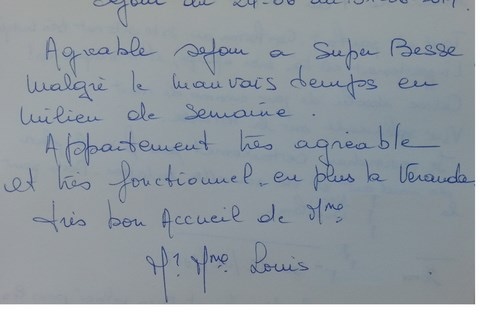 Séjour du 24-08 au
Agréable séjour a Super Besse
malgré le mauvais temps en
milieu de semaine.
Appartement très agréable
et très fonctionnel, en plus la Véranda
très bon Accueil de Mme
Mr Mme Louis